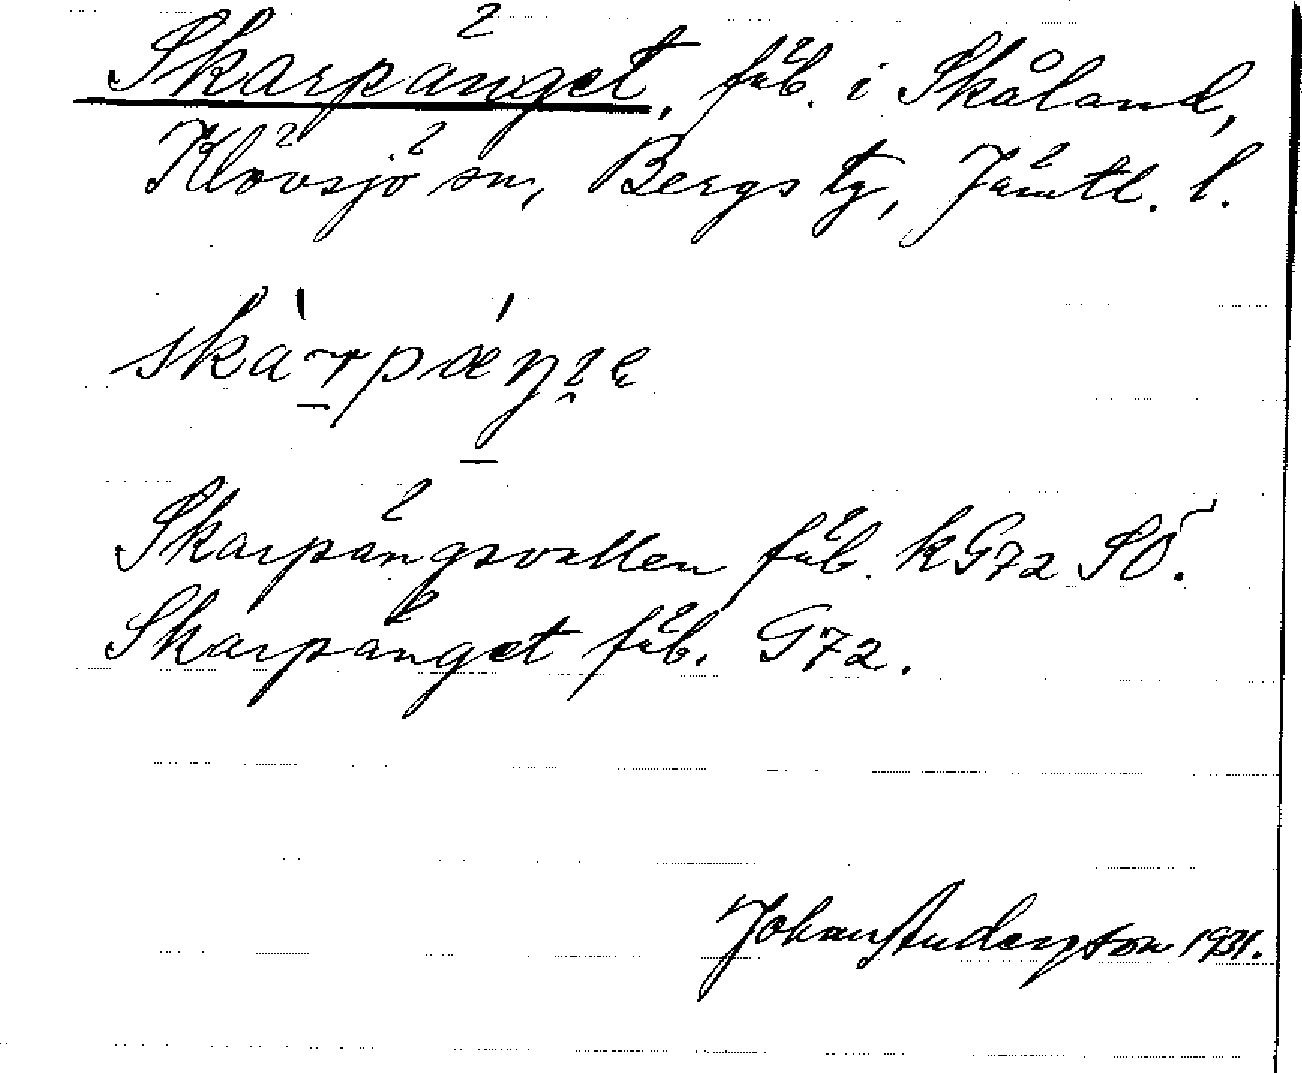 Skarpänget, fäb. i Skåland,
Klövsjö sn, Bergs tg, Jämtl. l.
Skarpängsvallen fäb. kG72 SÖ.
Skarpänget fäb. G72.
Johan Anderson 1931.